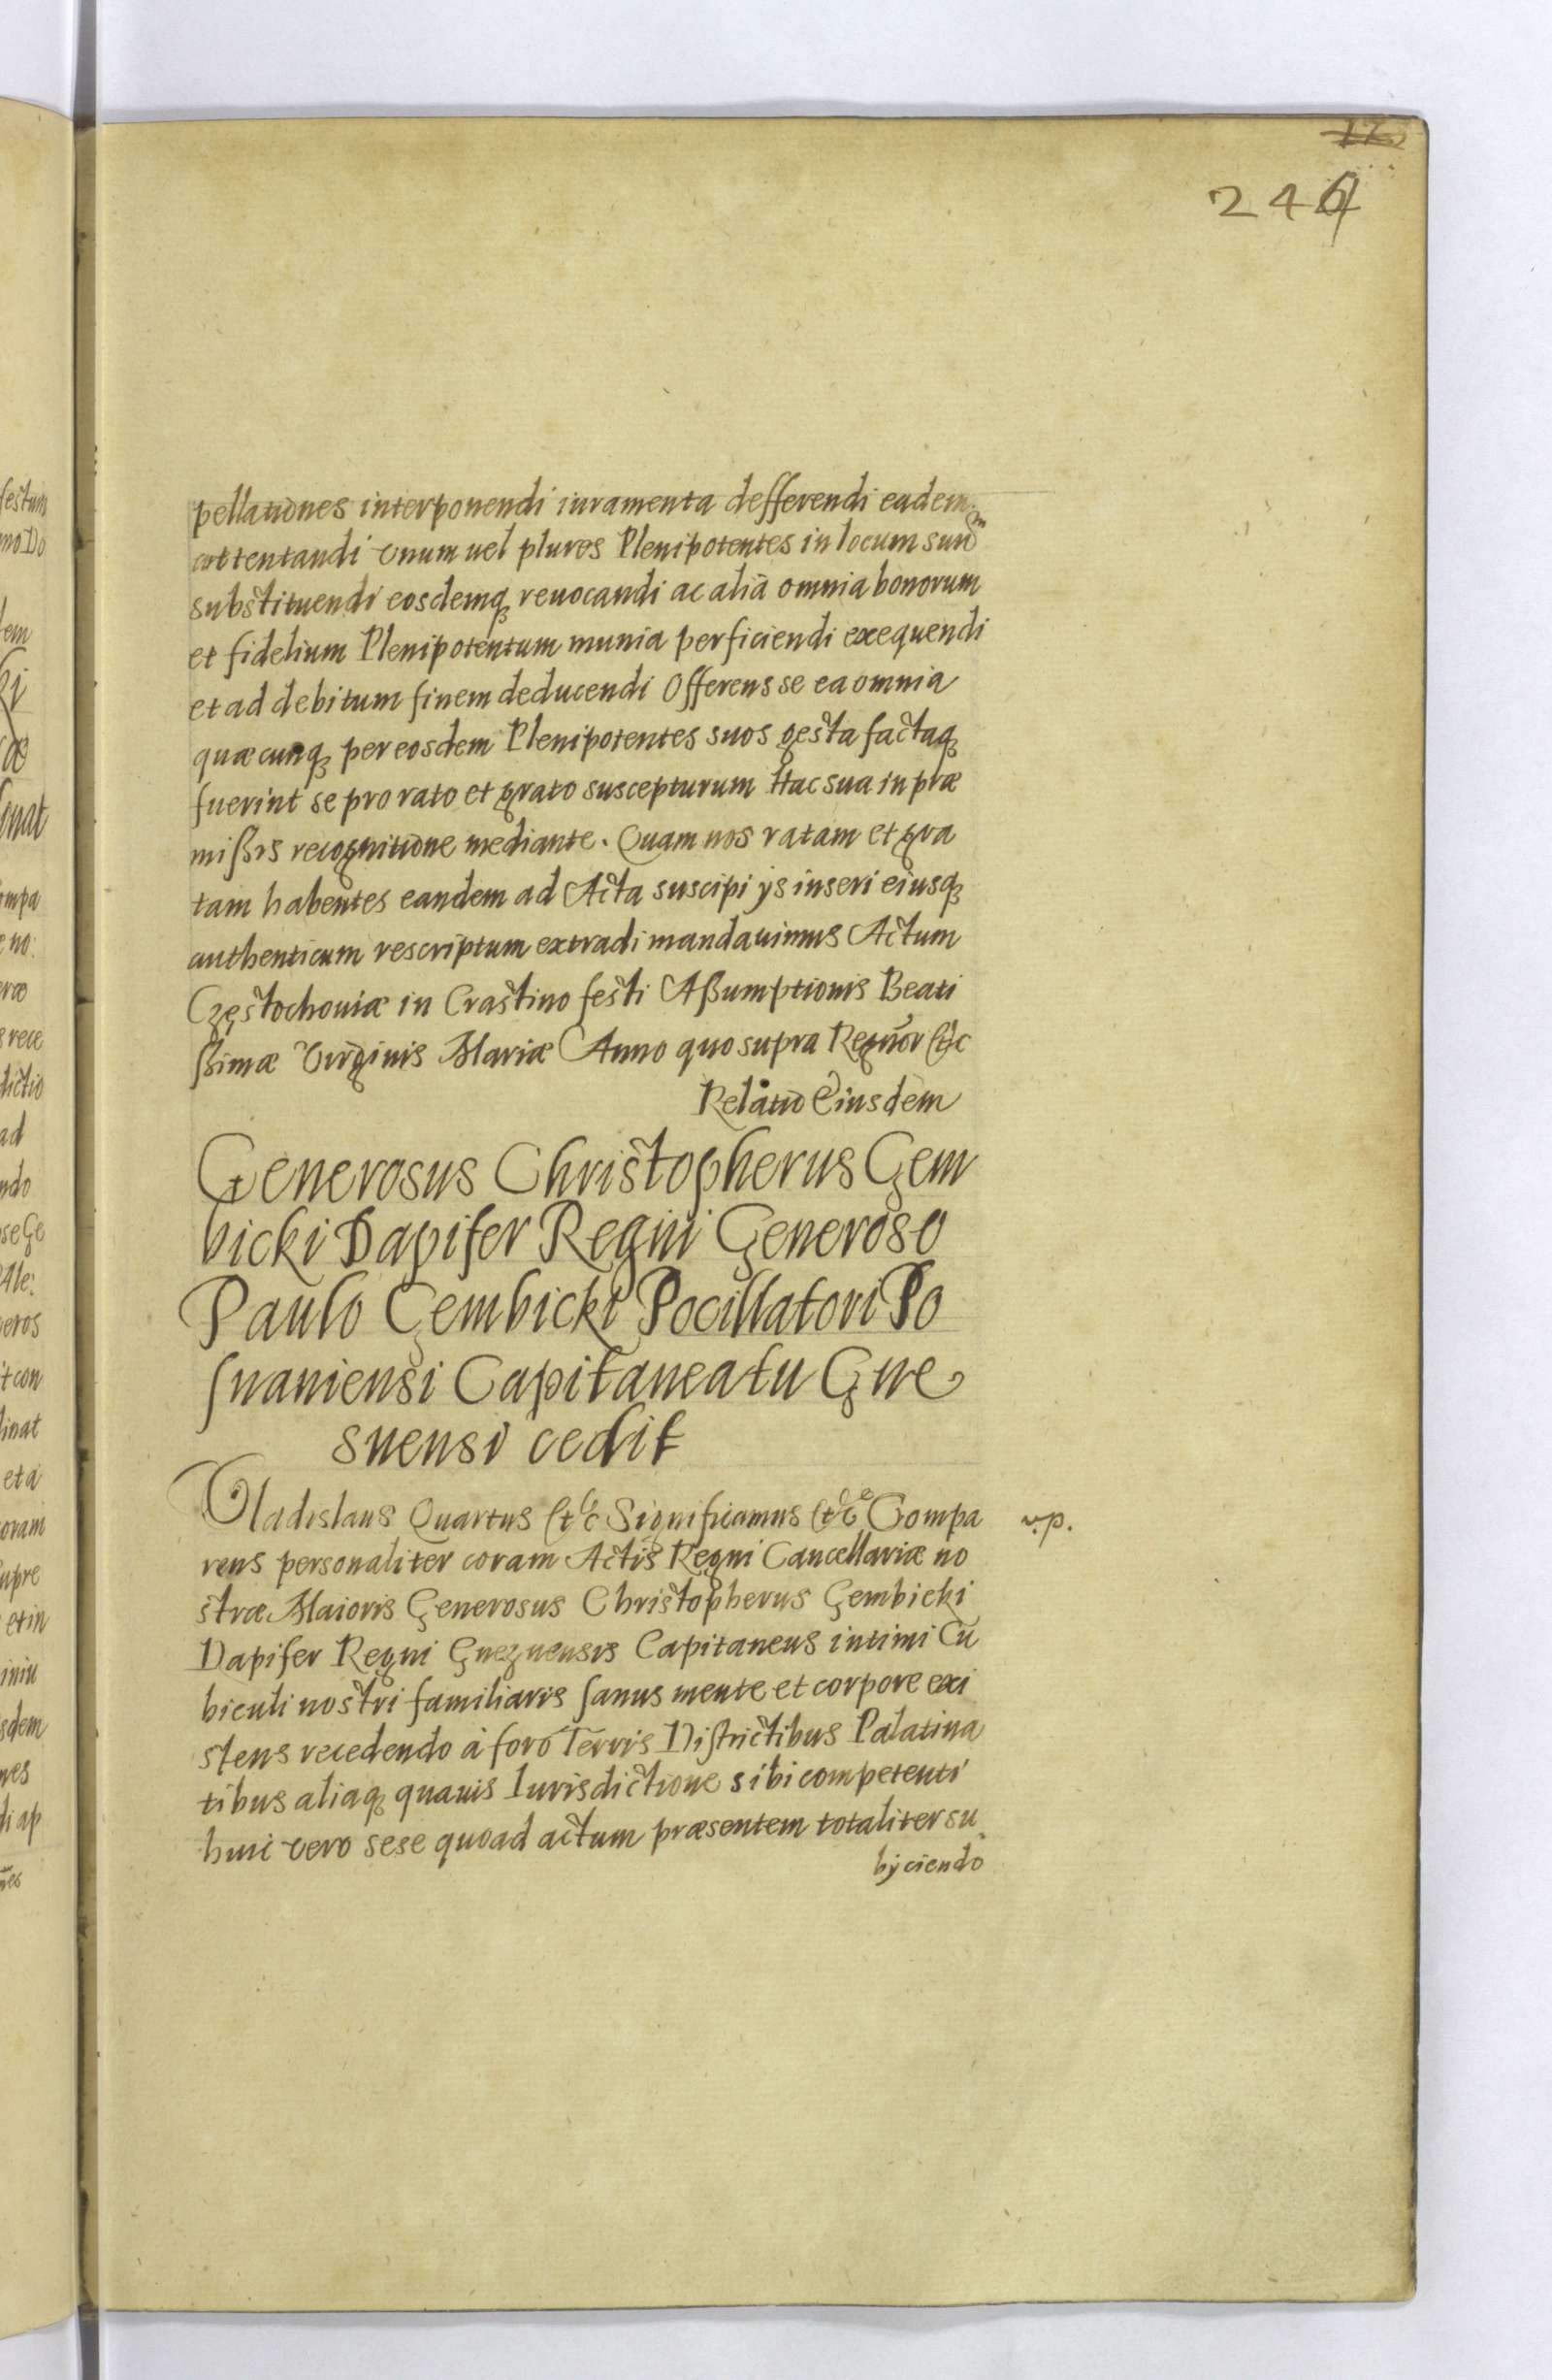 pellationes interponendi iuramenta defferendi eadem
attentandi vnum uel plures Plenipotentes in locum suū
substituendi eosdemq̨ reuocandi ac alia omnia bonorum
et fidelium Plenipotentum munia perficiendi exequendi
et ad debitum finem deducendi Offerens se ea omnia
quæcunq̨ per eosdem Plenipotentes suos gesta factaq̨
fuerint se pro rato et grato suscepturum Hac sua in præ
mißis recognitione mediante. Quam nos ratam et gra
tam habentes eandem ad Acta suscipi ys inseri eiusq̨
authenticum rescriptum extradi mandauimus Actum
Częstochouiæ in Crastino festi Aßumptionis Beati
ßimæ Virginis Mariæ Anno quo supra Regnor̄ &c
Relatio Eiusdem
Generosus Christopherus Gem
bicki Dapifer Regni Generoso
Paulo Gembicki Pocillatori Po
snaniensi Capitaneatu Gne
snensi cedit
Vladislaus Quartus &c Significamus &c Compa
v.p.
rens personaliter coram Actis Regni Cancellariæ no
stræ Maioris Generosus Christopherus Gembicki
Dapifer Regni Gneznensis Capitaneus intimi Cu
biculi nostri familiaris sanus mente et corpore exi
stens recedendo à foro Terris Districtibus Palatina
tibus aliaq̨ quauis Iurisdictione sibi competenti
huic vero sese quoad actum præsentem totaliter su
byciendo